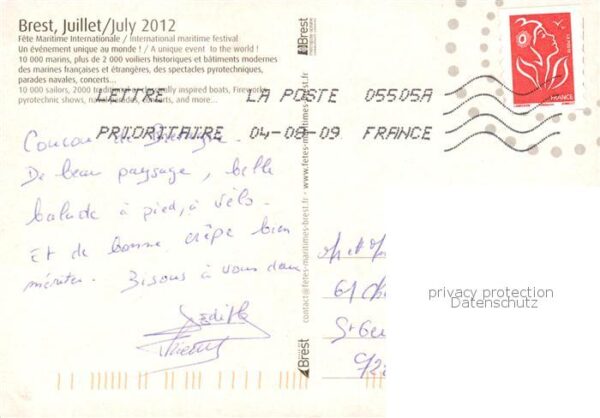 Brest, Juillet/July 2012
Fête Maritime Internationale / International maritime festival
Un événement unique au monde ! / A unique event to the world !
10 000 marins, plus de 2 000 voiliers historiques et bâtiments modernes
des marines françaises et étrangères, des spectacles pyrotechniques,
parades navales, concerts...
10 000 sailors, 2000 traditional inspired boats, Fireworks,
pyrotechnic shows, naval parades, concerts, and more...
LETTRE LA POSTE 05505A
PRIORITAIRE 04-08-09 FRANCE
Coucou de Bretagne.
De beau paysage, belle
balade à pied, à vélo.
Et de bonne crêpe bien
méritées. Bisous à vous deux
Edith
Brest
contact@fetes-maritimes-brest.fr - www.fetes-maritimes-brest.fr
Brest
FRANCE
61
St Ge
privacy protection
Datenschutz